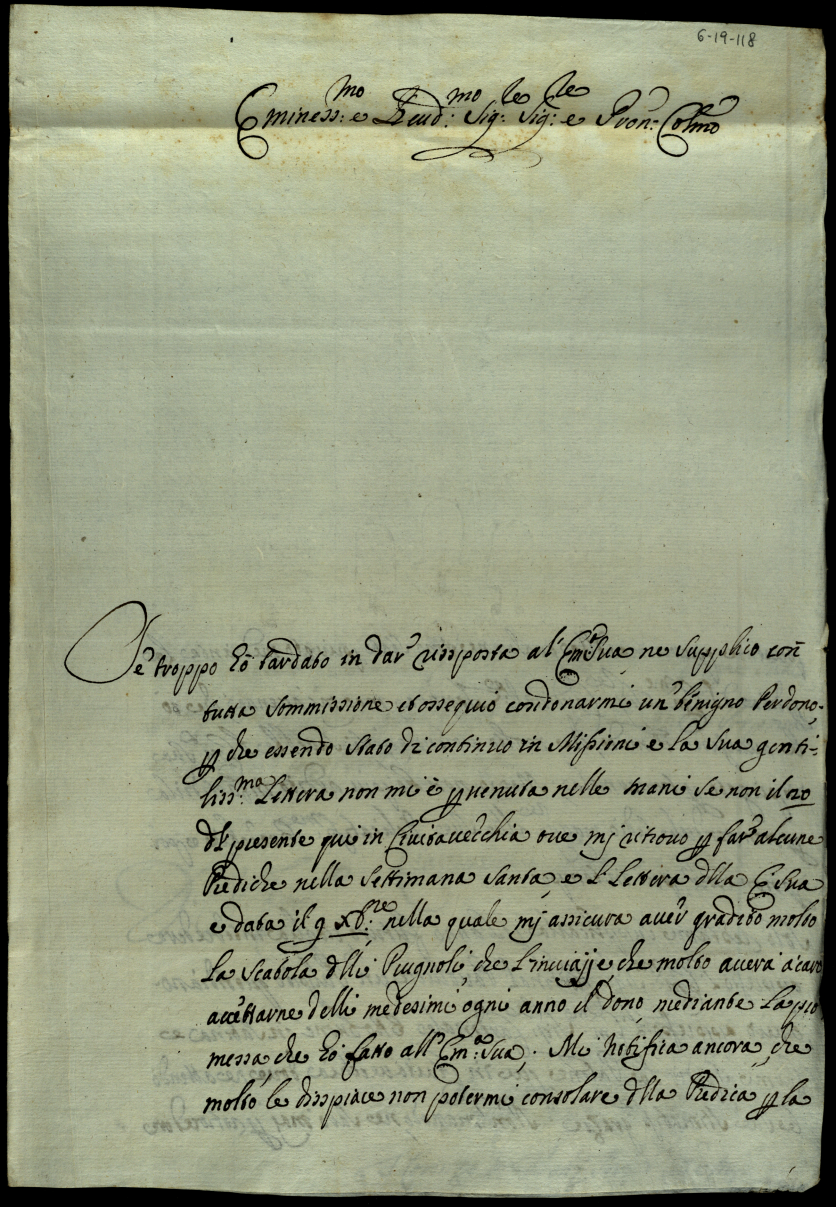 6-19-118
Eminess:mo e Reud:mo Sig:re Sig:re e Pron: Colmo
Se troppo hò tardato in dar' risposta al' Em:a Sua ne supplico con
tutta sommissione et ossequio condonarmi un' benigno Perdono,
p che essendo stato di continuo in Missioni e la sua genti-
liss:ma Lettera non mi è pvenuta nelle mani se non il 20
del presente qui in Civitavecchia ove mi ritrovo p far' alcune
Prediche nella Settimana Santa, e l' Lettera dlla E: Sua
e data il 9 Xb:re nella quale mj assicura aver gradito molto
la Scatola dlli Prugnoli, che l'inviaj, e che molto averà a caro
accettarne delli medesimi ogni anno il dono, mediante la pro
messa, che hò fatto all' Em:a Sua. Mi notifica ancora, che
molto le dispiace non potermi consolare dlla Predica, p la